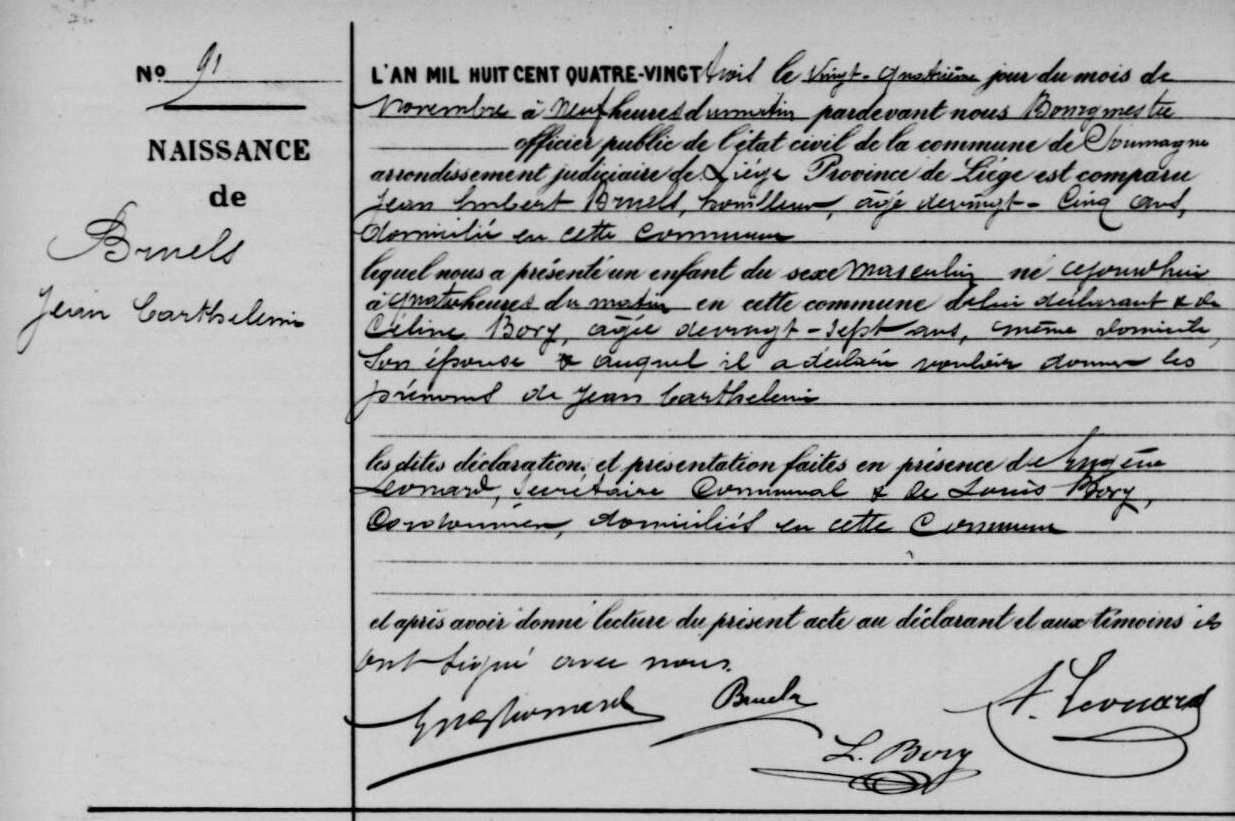 No 91
NAISSANCE
de
Bruels
Jean Barthelemi
L'AN MIL HUIT CENT QUATRE-VINGT trois le vingt-quatrième jour du mois de
Novembre à neuf heures du matin pardevant nous Bourgmestre
officier public de l'état civil de la commune de Soumagne
arrondissement judiciaire de Liége Province de Liége est comparu
Jean Lambert Bruels, houilleur, âgé de vingt-cinq ans,
domicilié en cette commune
lequel nous a présenté un enfant du sexe masculin né aujourd'hui
à quatre heures du matin en cette commune de lui déclarant & de
Céline Bory, âgée de vingt-sept ans, même domicile,
son épouse & auquel il a déclaré vouloir donner les
prénoms de Jean Barthelemi
les dites déclaration et présentation faites en présence de Eugène
Leonard, secrétaire communal & de Louis Bory,
Cordonnier, domiciliés en cette Commune
et après avoir donné lecture du présent acte au déclarant et aux témoins ils
ont signé avec nous.
Eug Leonard
Bruels
A. Leonard
L. Bory